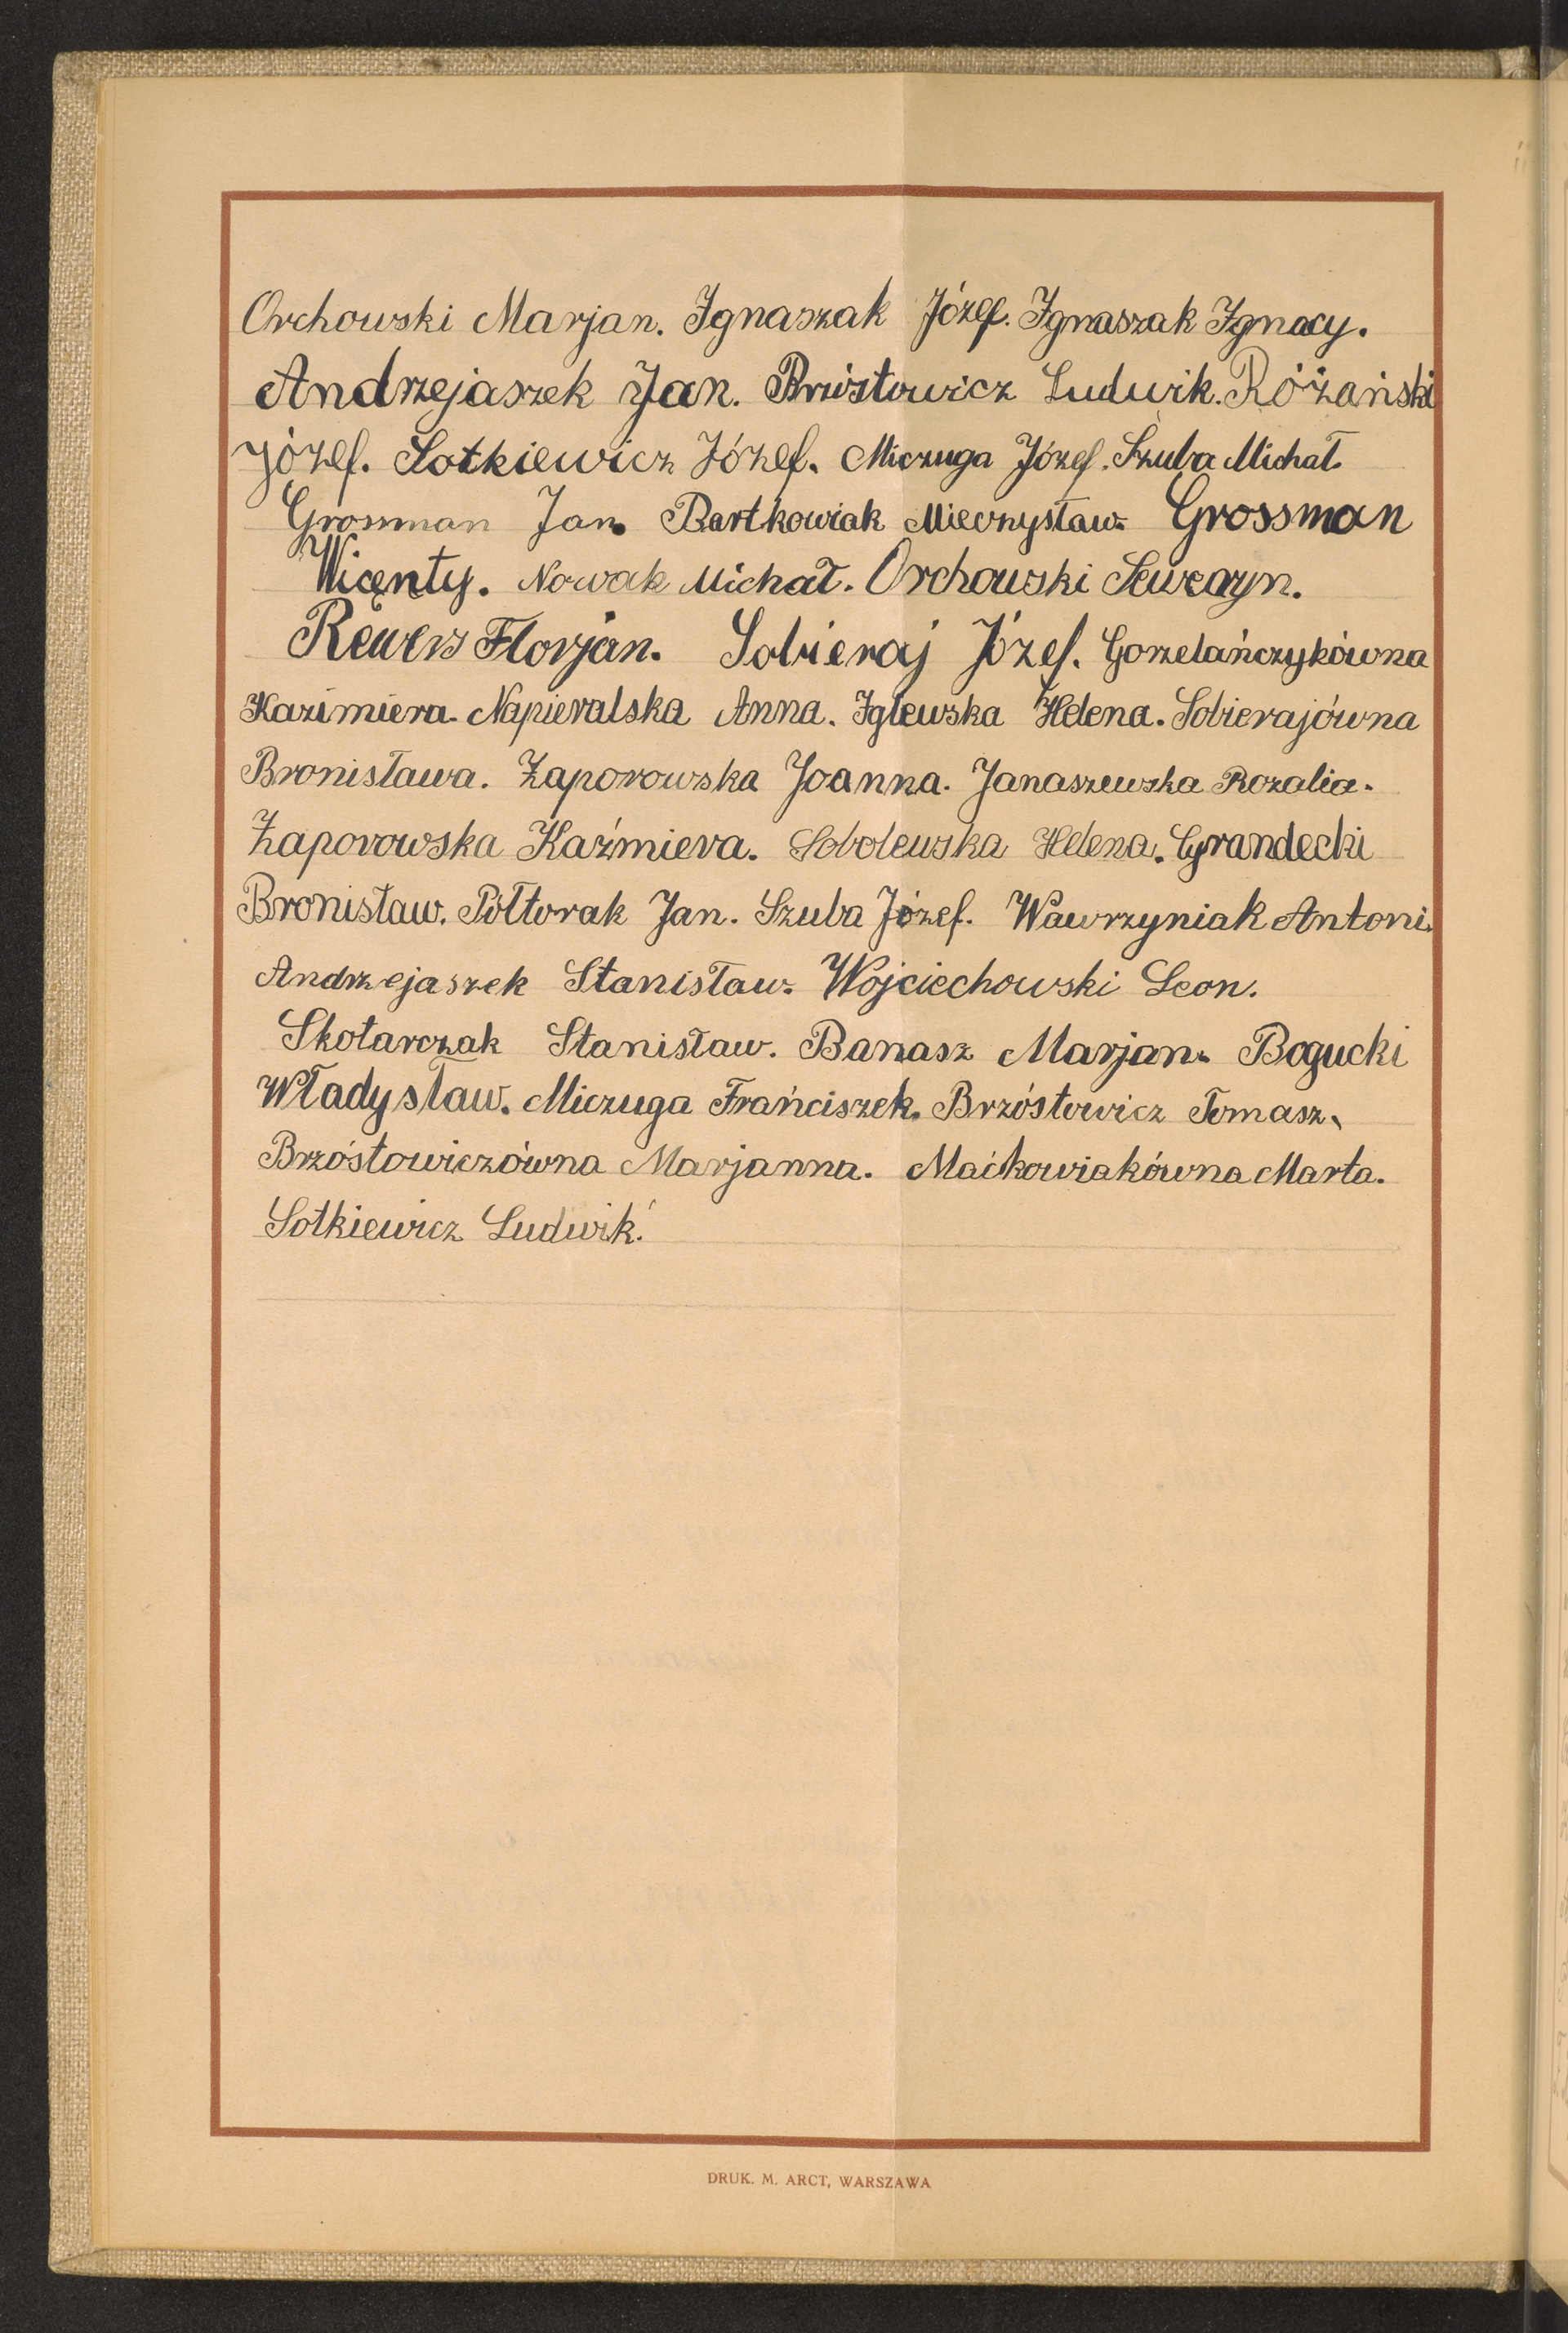 Orchowski Marjan. Ignaszak Józef. Ignaszak Ignacy.
Andrzejaszek Jan. Brzóstowicz Ludwik. Różański
Józef. Sotkiewicz Józef. Miczuga Józef. Szuba Michał.
Grossman Jan. Bartkowiak Mieczysław. Grossman
Wicenty. Nowak Michał. Orchowski Seweryn.
Rewers Florjan. Sobieraj Józef. Gorzelańczykówna
Kazimiera. Napieralska Anna. Iglewska Helena. Sobierajówna
Bronisława. Zaporowska Joanna. Janaszewska Rozalia.
Zaporowska Kaźmiera. Sobolewska Helena. Grandecki
Bronisław. Półtorak Jan. Szuba Józef. Wawrzyniak Antoni.
Andrzejaszek Stanisław. Wojciechowski Leon.
Skotarczak Stanisław. Banasz Marjan. Bogucki
Władysław. Miczuga Franciszek. Brzóstowicz Tomasz.
Brzóstowiczówna Marjanna. Maćkowiakówna Marta.
Sotkiewicz Ludwik.
DRUK. M. ARCT, WARSZAWA